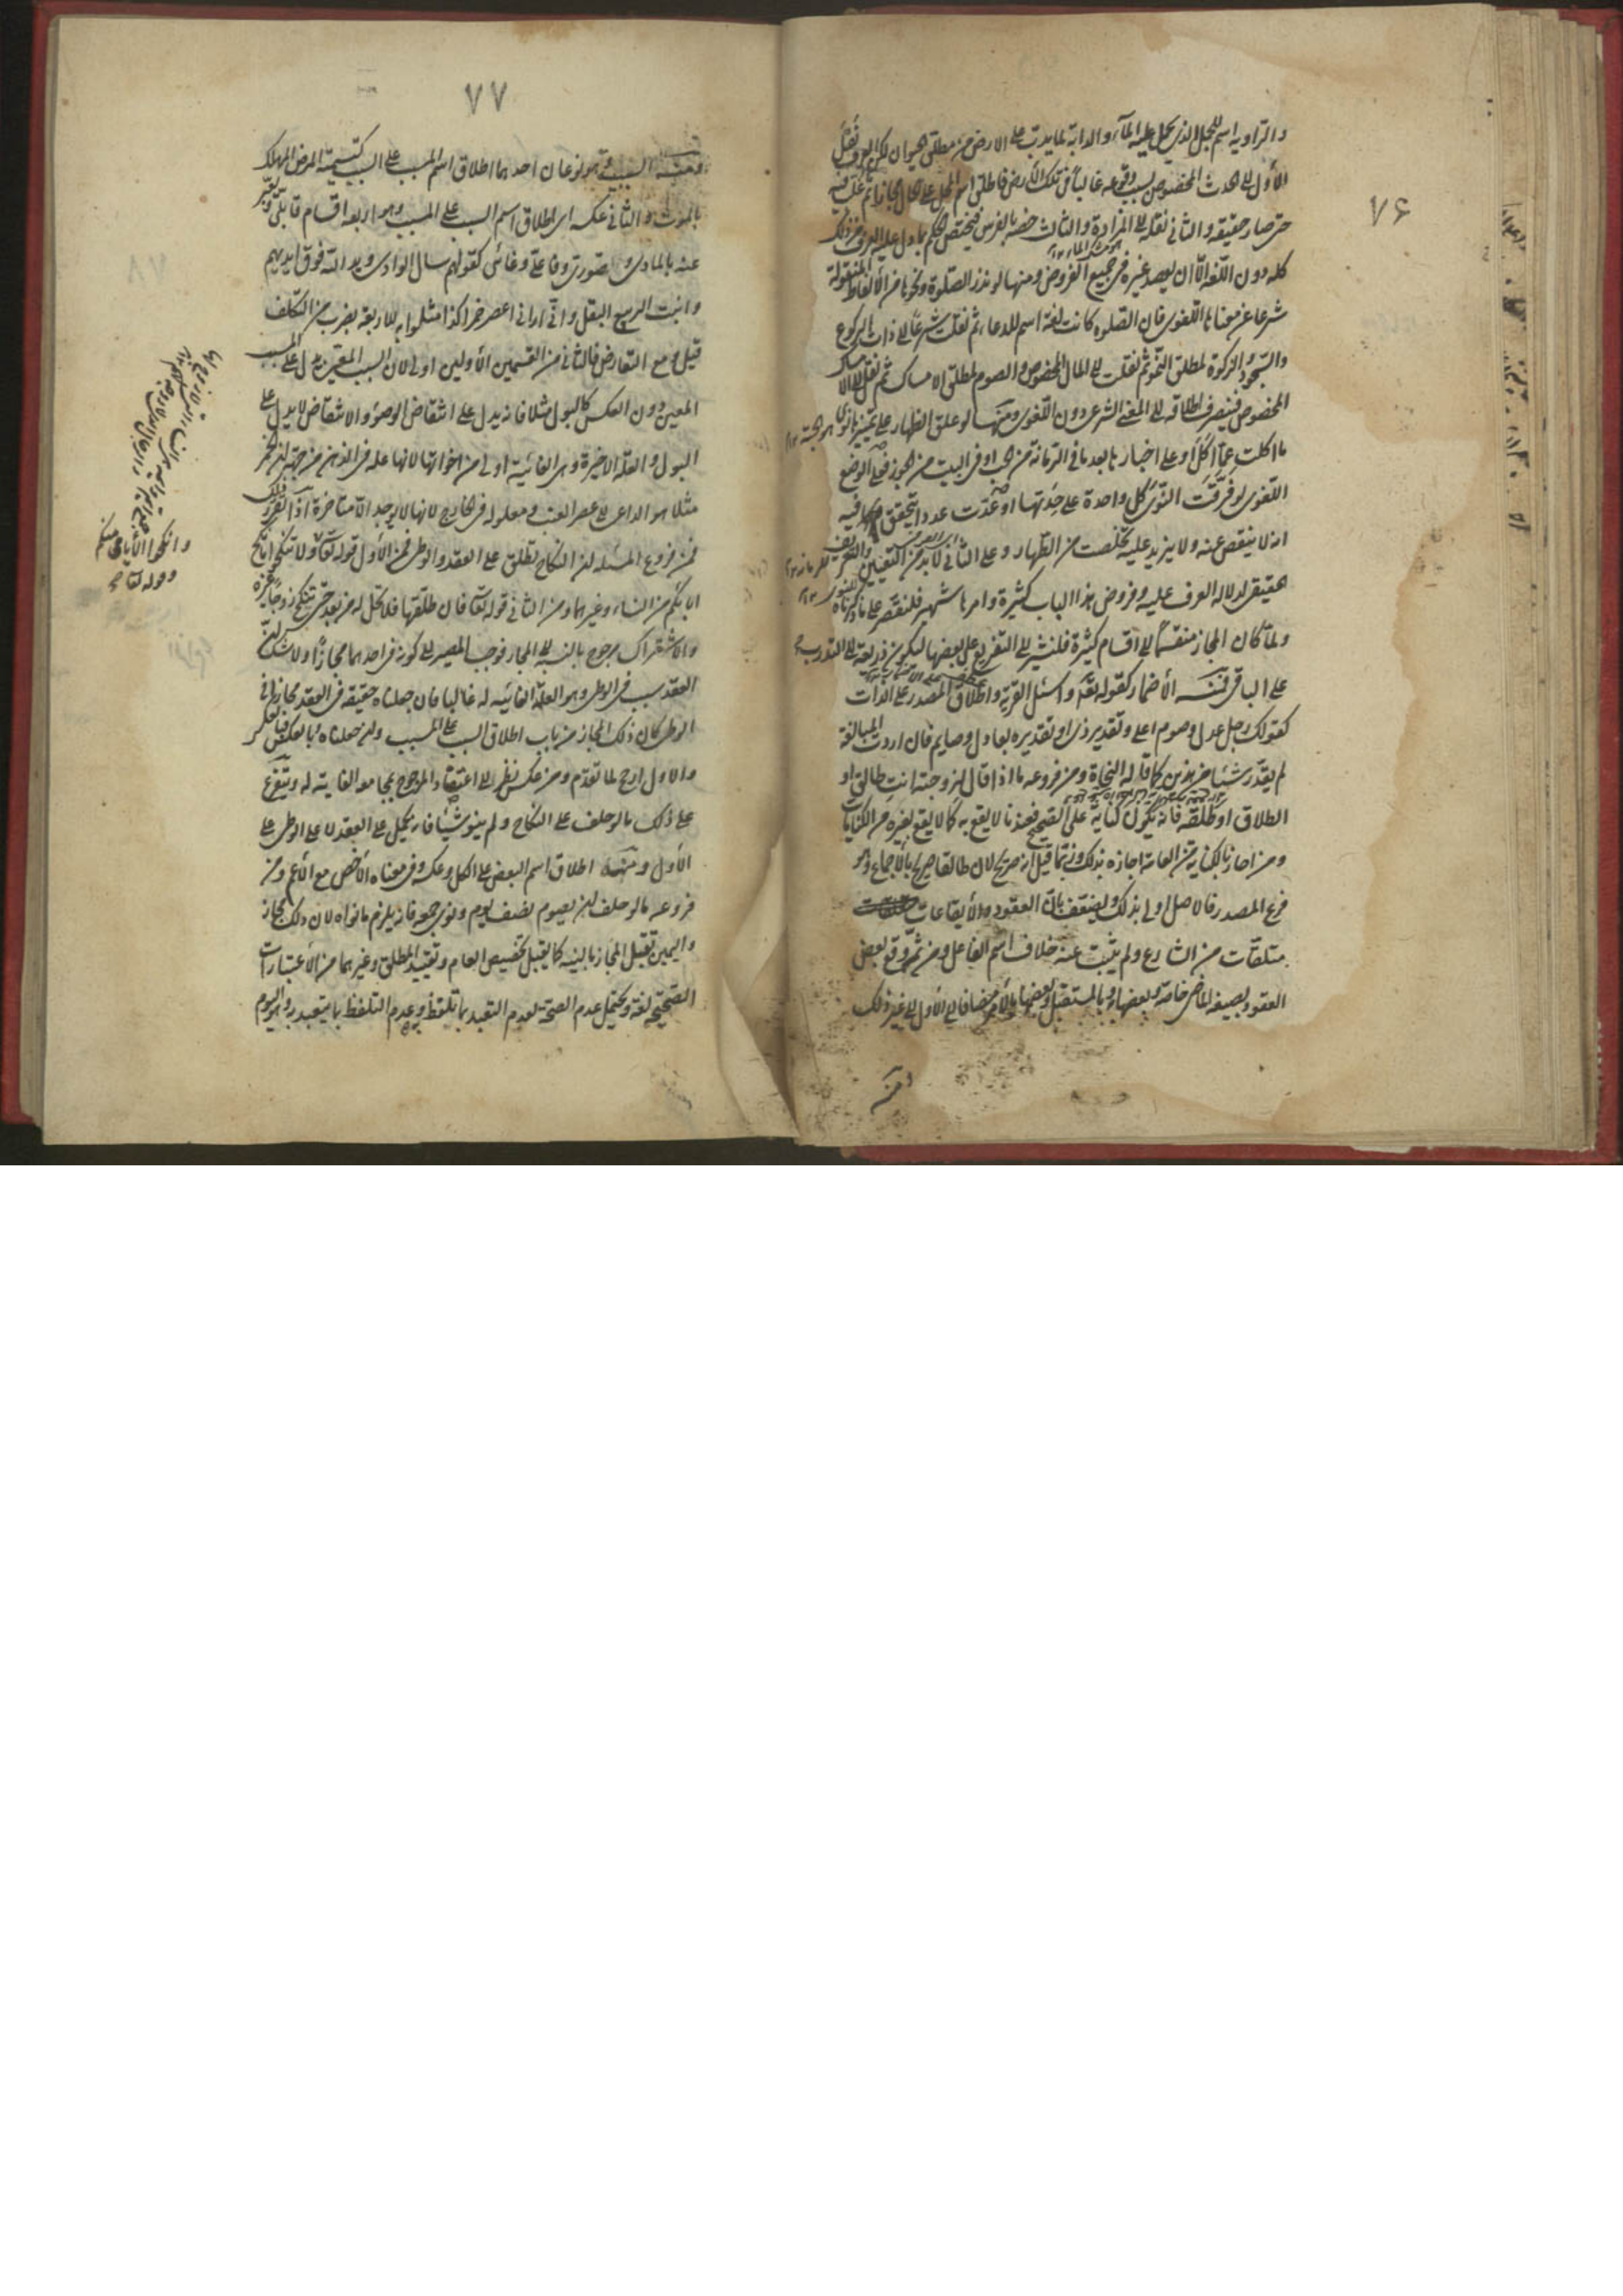 ٧۶
و الراويه اسم للجمل الذى يحمل عليه المآء و الدابة لما يدب على الارض من مطلق الحيوان لكن العرف نقل
الأول الى الحدث المخصوص بسبب وقوعه غالباً فى تلك الأرض فاطلق اسم المحل على الحال مجازا ثم غلب فيه
حتى صار حقيقه و الثانى نقله الى المزادة و الثالث خصه بالفرس فيختص الحكم بما دل عليه العرف من ذلك
كله دون اللغه الّا ان يقصد غيره فى جميع الفروض و منها لو نذر الصلوة و نحوها من الألفاظ المنقولة
شرعا عن معناها اللغوى فان الصلوه كانت لغة اسم للدعاء ثم نقلت شرعاً الى ذات الركوع
والسّجود و الزكوة لمطلق النّمو ثم نقلت الى المال المخصوص و الصوم لمطلق الامساك ثم نقل الى الامساك
المخصوص فينصرف اطلاقه الى المعنى الشرعى دون اللغوى و منها لو علق الظهار على تمييز نوى
ما اكلت عمّا اكل او على اخبارها بعدد ما فى الرمانة من حب او فى البيت من الجوز ففى الوضع
اللغوى لو فرّقت النّوى كل واحدة على حِدَتها او عدّت عددا يتحقق فيه
انه لا ينقص عنه ولا يزيد عليه تخلصت من الظّهار و على الثانى لابدّ من التعيين و التعريف
حقيقى لدلاله العرف عليه و فروض هذا الباب كثيرة و امرها شهير فلنقتصر على ما ذكرناه
ولمّا كان المجاز منقسماً الى اقسام كثيرة فلنشر الى التفريع على بعضها ليكون ذريعة الى التدرب
على الباقى فمنه الأضمار كقوله تعالى و اسئل القرية و اطلاق المصدر على الذات
كقولك رجل عدل و صوم اعلى و تقديره ذى او تقديره بعادل و صايم فان اردت المبالغة
لم يقدّر شيئا من هذين كما قاله النحاة و من فروعه ما اذا قال لزوجته انت طالق او
الطلاق او طلقه فانه يكون كناية على الصحيح فعندنا لا يقع به كما لا يقع بغيره من الكنايات
و من اجاز بالكناية من العامة اجازه بذلك و ربّما قيل انه صريح لان طالقا صريح بالاجماع و هو
فرع المصدر فالاصل اولى بذلك و يضعف بانّ العقود و الأيقاعات
متلقات من الشارع و لم يثبت عنه خلاف اسم الفاعل و من ثم وقع بعض
العقود بصيغه الماضى خاصة و بعضها و بالمستقبل و بعضها بالأمر مضافا الى الأول الى غير ذلك
و منه
٧٧
و منه السببيّة و هو نوعان احدهما اطلاق اسم المسبب على السبب كتسمية المرض المهلك
بالموت و الثانى عكسه اى اطلاق اسم السبب على المسبب و هو اربعة اقسام قابلى و يعبّر
عنه بالمادى و صورى و فاعلى و غائى كقولهم سال الوادى و يد اللّه فوق ايديهم
و انبت الربيع البقل و انّى ارانى اعصر خمرا كذا مثلوا به للاربعة بضرب من التكلف
قيل و مع التعارض فالثانى من القسمين الأولين اولى لان السبب المعيّن يدل على المسبب
المعين دون العكس كالبول مثلا فانه يدل على انتقاض الوضوء و الانتقاض لا يدل على
البول و العلة الاخيرة و هى الغائية اولى من اخواتها لانها علة فى الذهن من جهة ان الخمر
مثلا هو الداعى الى عصر العنب و معلوله فى الخارج لانها لا يوجد الّا متاخرة اذا تقرر ذلك
فمن فروع المسئله ان النكاح يطلق على العقد و الوطى فمن الأول قوله تعالى و لا تنكحوا ما نكح
اباؤكم من النساء و غيرهما و من الثانى قوله تعالى فان طلقها فلا تحل له من بعد حتى تنكح زوجاً غيره
و الاشتراك مرجوح بالنسبة الى المجاز فوجب المصير الى كونه فى احدهما مجازاً و لا شك ان
العقد سبب فى الوطى و هو العلة الغائيه له غالبا فان جعلناه حقيقة فى العقد مجازا فى
الوطى كان ذلك المجاز من باب اطلاق السبب على المسبب و ان جعلناه بالعكس فبالعكس
و الاول ارجح لما تقدّم و من عكس نظر الى اعتضاد المرجوح بمجامعه الغاية له و يتفرع
على ذلك ما لو حلف على النكاح و لم ينو شيئا فانه يحمل على العقد لا على الوطى على
الأول و منه اطلاق اسم البعض على الكل و عكسه و فى معناه الأخص مع الأعم و من
فروعه ما لو حلف ان يصوم نصف يوم و نوى جميعه فانه يلزم ما نواه لان ذلك مجاز
و اليمين تقبل المجاز بالنيه كما يقبل تخصيص العام و تقييد المطلق و غيرهما من الأعتبارات
الصحيحة لغة و يحتمل عدم الصحة لعدم التعبد بما تلفظ و عدم التلفظ بما يتعبد به و هو اليوم
و انكحوا الأيامى منكم
و قوله تعالى